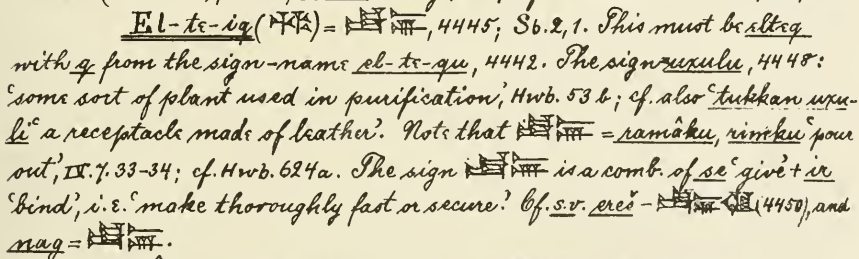 El-te-iq (𒀯) = 𒉀, 4445; Sb. 2, 1. This must be elteq
with q from the sign-name el-te-qu, 4442. The sign uxulu, 4448:
'some sort of plant used in purification', Hwb. 53 b; cf. also 'tukkan uxu-
li' 'a receptacle made of leather'. Note that = ramâku, rimku 'pour
out', IV. 7. 33-34; cf. Hwb. 624a. The sign is a comb. of se 'give' + ir
'bind', i.e. 'make thoroughly fast or secure'. Cf. s.v. ereš - (4450), and
nag = .